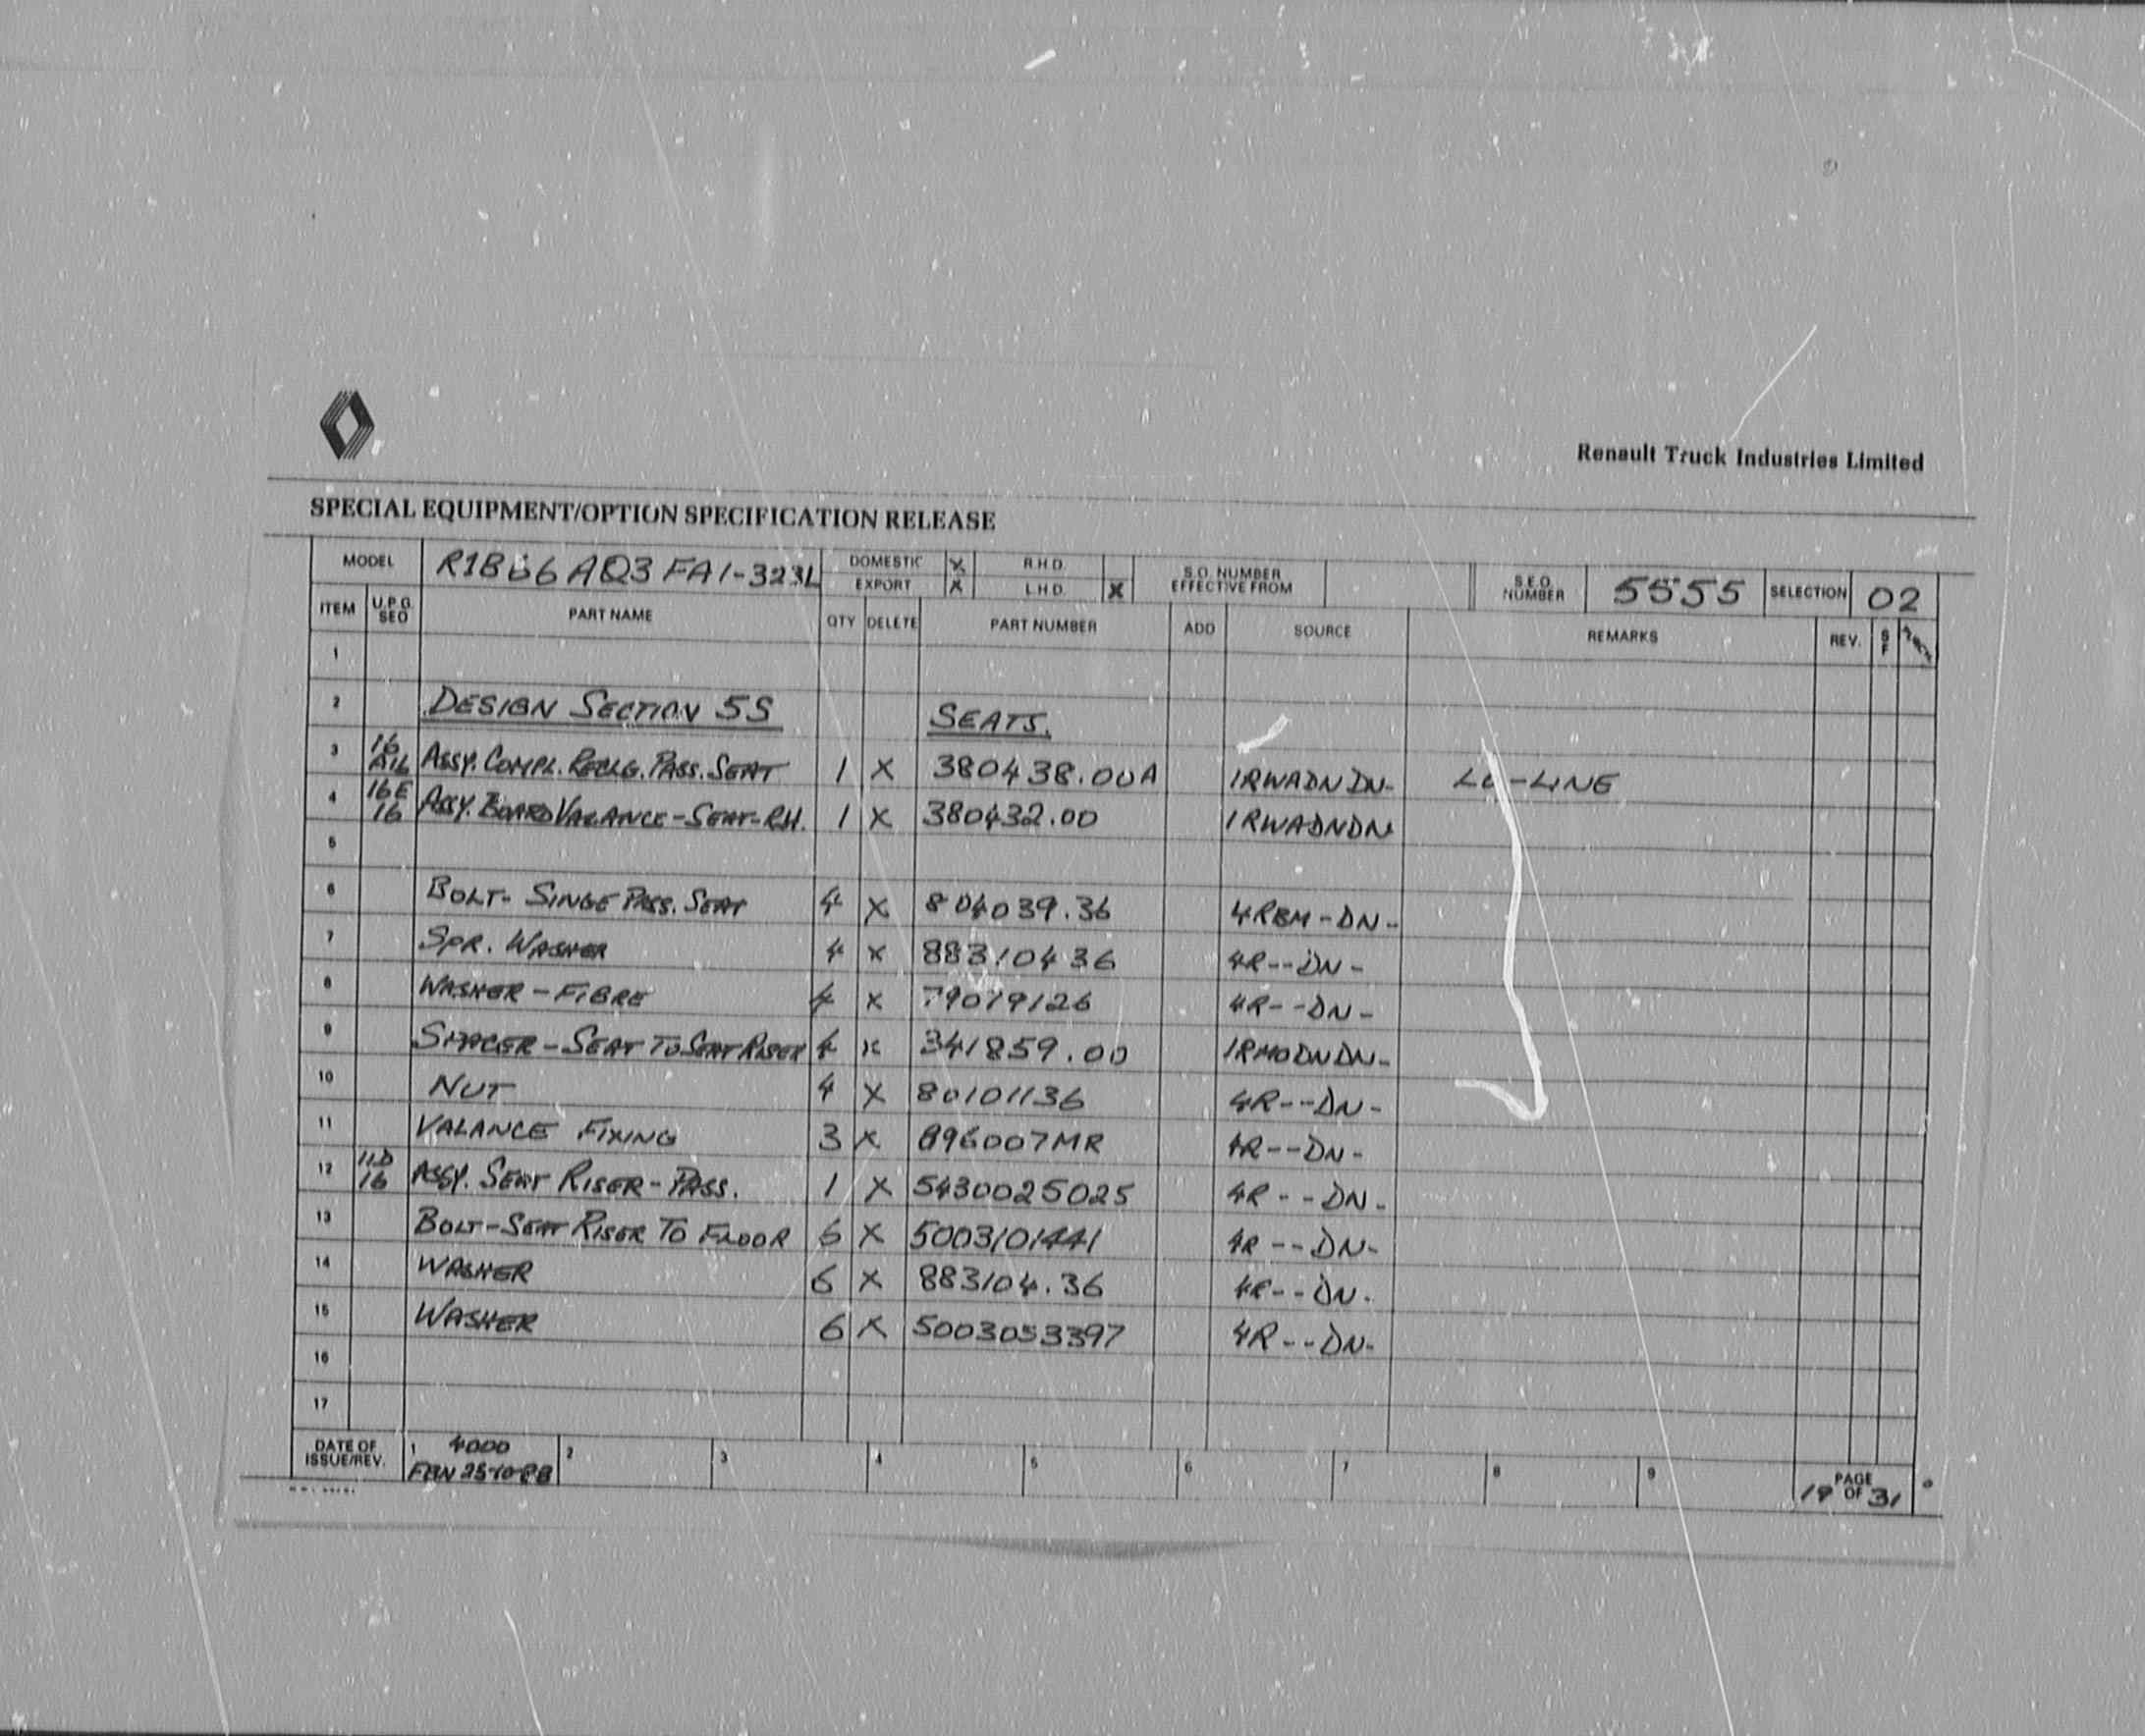 Renault Truck Industries Limited
SPECIAL EQUIPMENT/OPTION SPECIFICATION RELEASE
MODEL R1B66AQ3FA1-323L DOMESTIC X R.H.D. S.O. NUMBER EFFECTIVE FROM S.E.O. NUMBER 5555 SELECTION 02
EXPORT X L.H.D. X
ITEM U.P.G. SEQ PART NAME QTY DELETE PART NUMBER ADD SOURCE REMARKS REV. S F
1
2 DESIGN SECTION 5S SEATS.
3 16 ASSY. COMPL. RECLG. PASS. SEAT 1 X 380438.00A 1RWADNDN- LO-LINE
4 16E 16 ASSY. BOARD VALANCE-SEAT-RH. 1 X 380432.00 1RWADNDN
5
6 BOLT- SINGE PASS. SEAT 4 X 804039.36 4RBM-DN-
7 SPR. WASHER 4 X 88310436 4R--DN-
8 WASHER-FIBRE 4 X 79079126 4R--DN-
9 SPACER-SEAT TO SEAT RISER 4 X 341859.00 1RMODNDN-
10 NUT 4 X 80101136 4R--DN-
11 VALANCE FIXING 3 X 896007MR 4R--DN-
12 11D 16 ASSY. SEAT RISER-PASS. 1 X 5430025025 4R--DN-
13 BOLT-SEAT RISER TO FLOOR 6 X 5003101441 4R--DN-
14 WASHER 6 X 883104.36 4R--DN-
15 WASHER 6 X 5003053397 4R--DN-
16
17
DATE OF ISSUE/REV. 1 4000 2 3 4 5 6 7 8 9 PAGE 19 OF 31
25-10-88